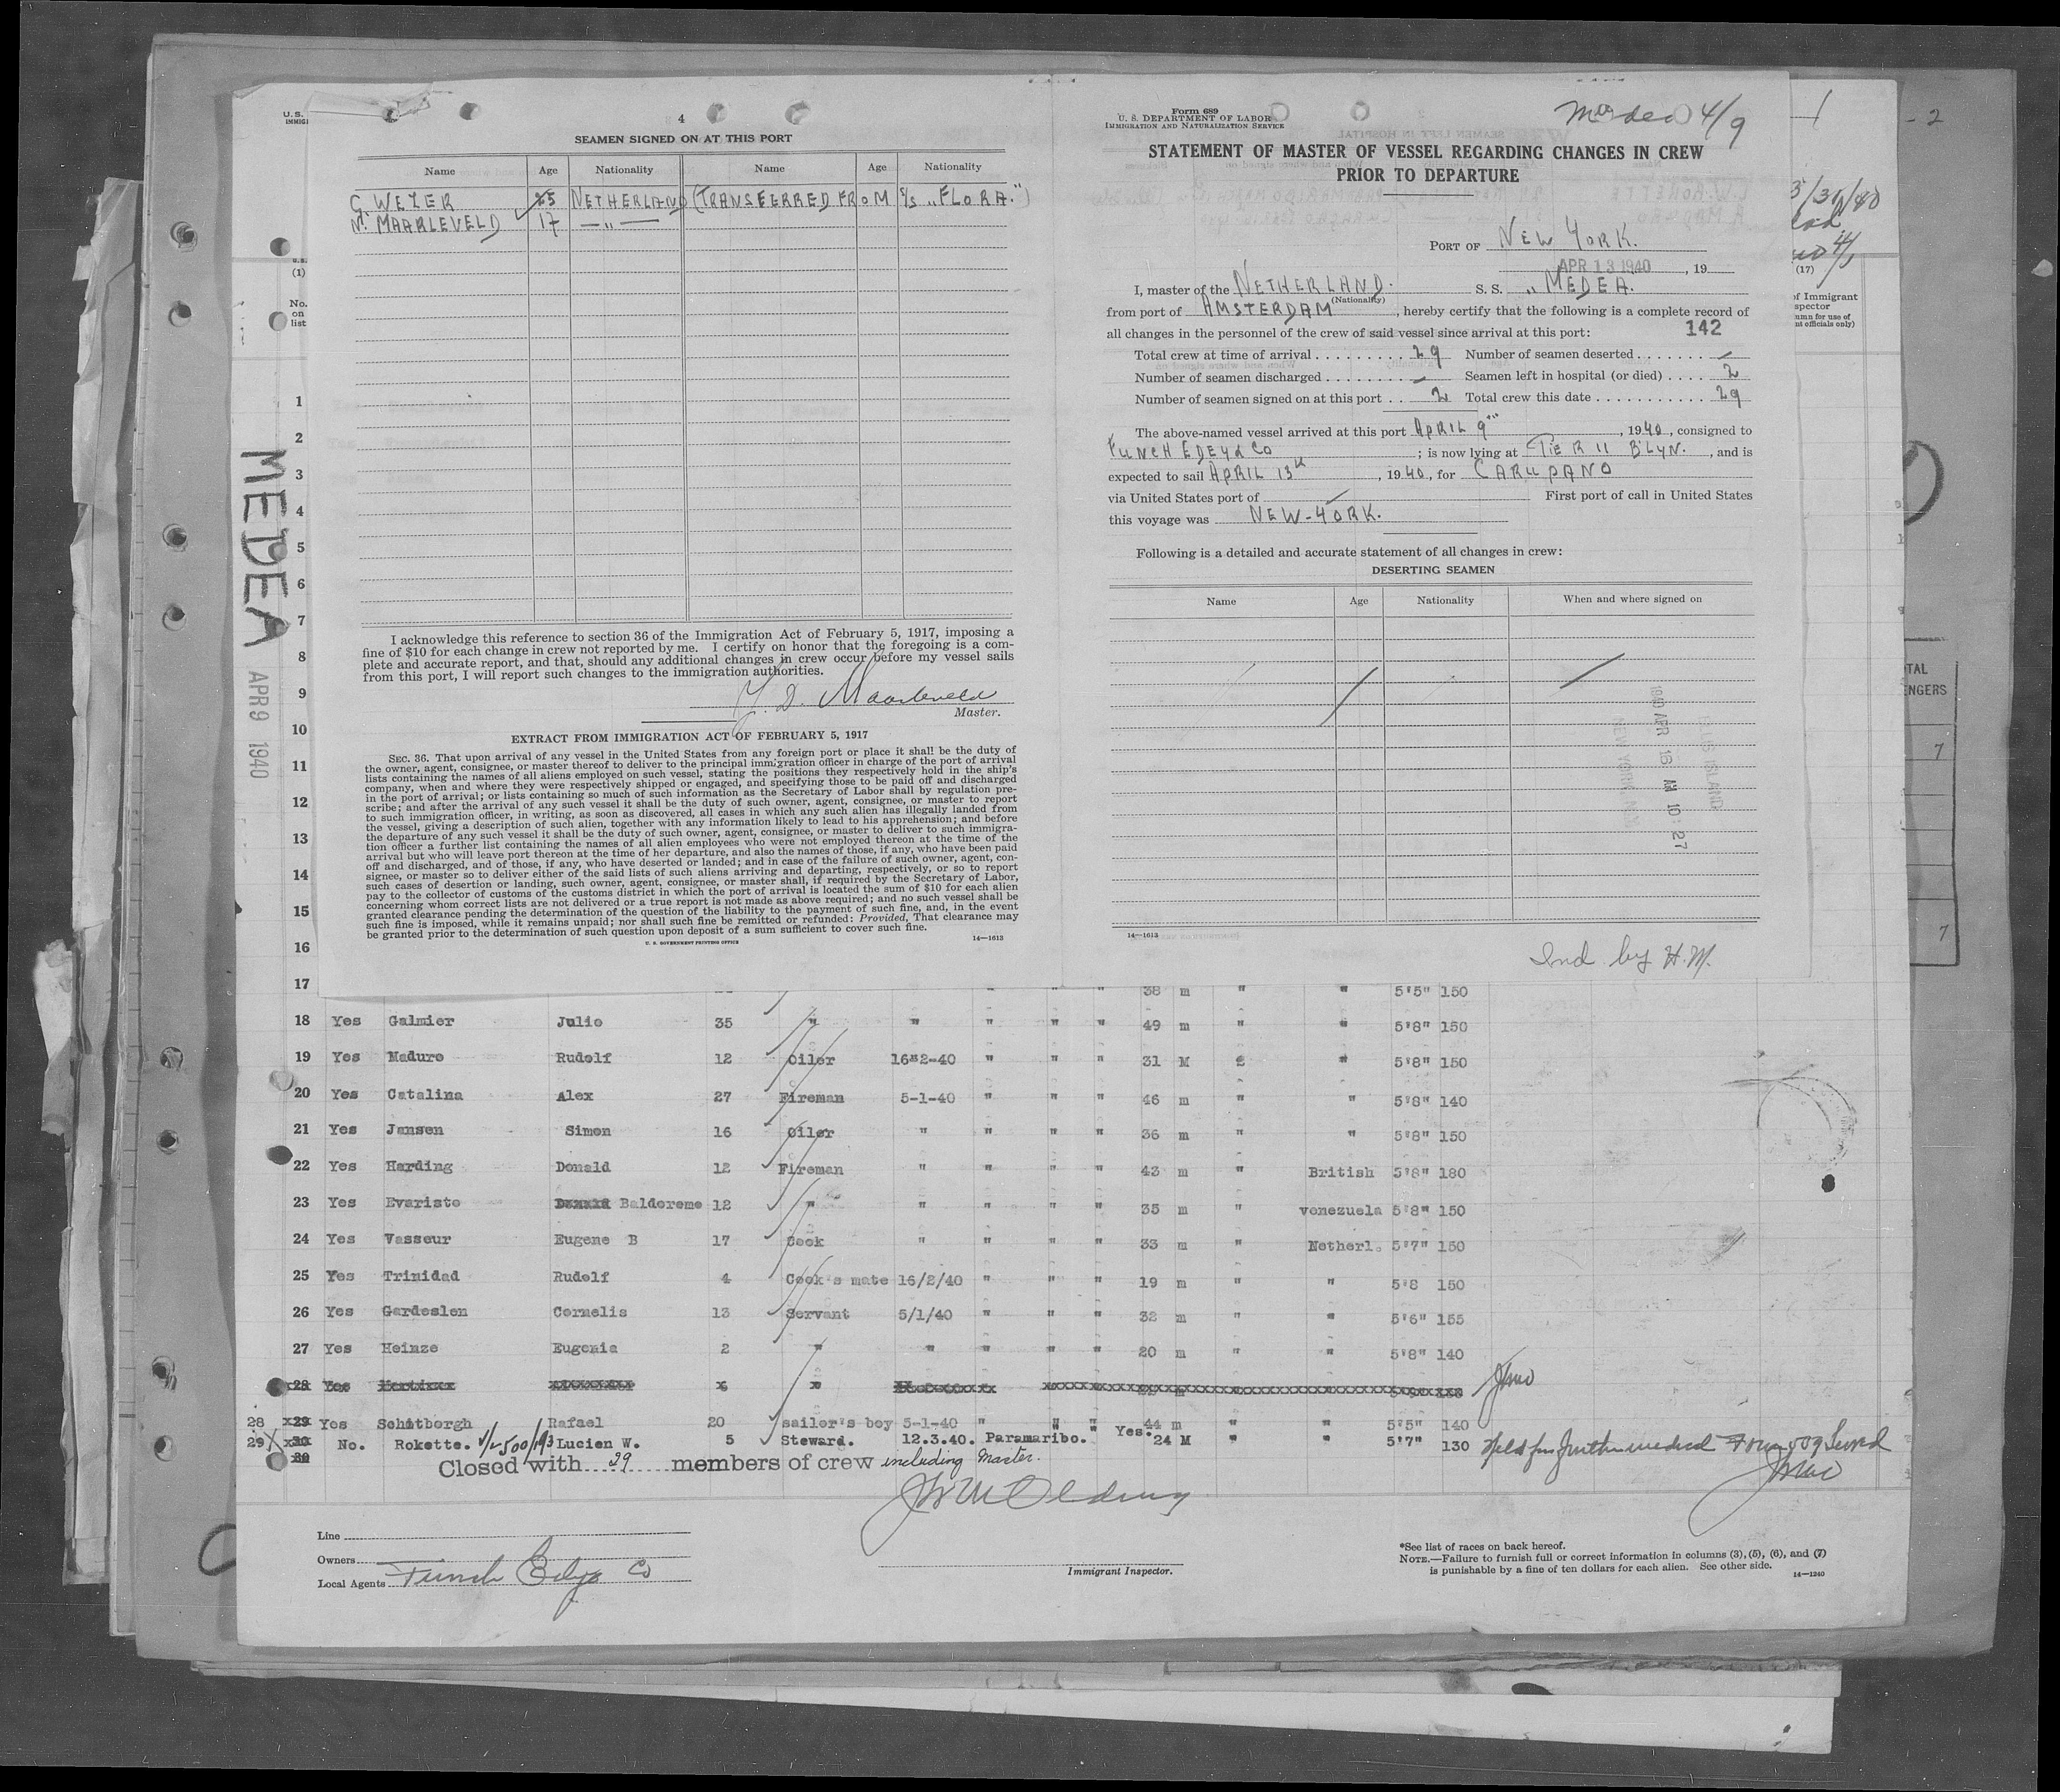 4
SEAMEN SIGNED ON AT THIS PORT
Name Age Nationality Name Age Nationality
G. WEZER 25 NETHERLAND (TRANSFERRED FROM S/S „FLORA.")
N. MAARLEVELD 17 —„—
I acknowledge this reference to section 36 of the Immigration Act of February 5, 1917, imposing a
fine of $10 for each change in crew not reported by me. I certify on honor that the foregoing is a com-
plete and accurate report, and that, should any additional changes in crew occur before my vessel sails
from this port, I will report such changes to the immigration authorities.
Maarleveld
Master.
EXTRACT FROM IMMIGRATION ACT OF FEBRUARY 5, 1917
SEC. 36. That upon arrival of any vessel in the United States from any foreign port or place it shall be the duty of
the owner, agent, consignee, or master thereof to deliver to the principal immigration officer in charge of the port of arrival
lists containing the names of all aliens employed on such vessel, stating the positions they respectively hold in the ship's
company, when and where they were respectively shipped or engaged, and specifying those to be paid off and discharged
in the port of arrival; or lists containing so much of such information as the Secretary of Labor shall by regulation pre-
scribe; and after the arrival of any such vessel it shall be the duty of such owner, agent, consignee, or master to report
to such immigration officer, in writing, as soon as discovered, all cases in which any such alien has illegally landed from
the vessel, giving a description of such alien, together with any information likely to lead to his apprehension; and before
the departure of any such vessel it shall be the duty of such owner, agent, consignee, or master to deliver to such immigra-
tion officer a further list containing the names of all alien employees who were not employed thereon at the time of the
arrival but who will leave port thereon at the time of her departure, and also the names of those, if any, who have been paid
off and discharged, and of those, if any, who have deserted or landed; and in case of the failure of such owner, agent, con-
signee, or master so to deliver either of the said lists of such aliens arriving and departing, respectively, or so to report
such cases of desertion or landing, such owner, agent, consignee, or master shall, if required by the Secretary of Labor,
pay to the collector of customs of the customs district in which the port of arrival is located the sum of $10 for each alien
concerning whom correct lists are not delivered or a true report is not made as above required; and no such vessel shall be
granted clearance pending the determination of the question of the liability to the payment of such fine, and, in the event
such fine is imposed, while it remains unpaid; nor shall such fine be remitted or refunded: Provided, That clearance may
be granted prior to the determination of such question upon deposit of a sum sufficient to cover such fine.
U. S. GOVERNMENT PRINTING OFFICE 14—1613
Form 689
U. S. DEPARTMENT OF LABOR
IMMIGRATION AND NATURALIZATION SERVICE
4/9
STATEMENT OF MASTER OF VESSEL REGARDING CHANGES IN CREW
PRIOR TO DEPARTURE
PORT OF NEW YORK.
APR 13 1940, 19
I, master of the NETHERLAND. S. S. „MEDEA.
(Nationality)
from port of AMSTERDAM, hereby certify that the following is a complete record of
all changes in the personnel of the crew of said vessel since arrival at this port: 142
Total crew at time of arrival 29 Number of seamen deserted —
Number of seamen discharged — Seamen left in hospital (or died) 2
Number of seamen signed on at this port 2 Total crew this date 29
The above-named vessel arrived at this port APRIL 9th, 1940, consigned to
FUNCH EDEY & CO; is now lying at PIER 11 B'LYN., and is
expected to sail APRIL 13th, 1940, for CARUPANO
via United States port of — First port of call in United States
this voyage was NEW-YORK.
Following is a detailed and accurate statement of all changes in crew:
DESERTING SEAMEN
Name Age Nationality When and where signed on
ELLIS ISLAND
1940 APR 13 AM 10:27
NEW YORK
14—1613
Ind by H.M.
MEDEA APR 9 1940
U.S.
IMMIGI
(1)
No.
on
list
1
2
3
4
5
6
7
8
9
10
11
12
13
14
15
16
17 38 m " " 5'5" 150
18 Yes Galmier Julio 35 " " " " " 49 m " " 5'8" 150
19 Yes Maduro Rudolf 12 Oiler 16-2-40 " " " 31 M " 5'8" 150
20 Yes Catalina Alex 27 Fireman 5-1-40 " " " 46 m " " 5'8" 140
21 Yes Jansen Simon 16 Oiler " " " " 36 m " " 5'8" 150
22 Yes Harding Donald 12 Fireman " " " " 43 m " British 5'8" 180
23 Yes Evaristo Donald Balderome 12 " " " " " 35 m " venezuela 5'8" 150
24 Yes Vasseur Eugene B 17 Cook " " " " 33 m " Netherl. 5'7" 150
25 Yes Trinidad Rudolf 4 Cook's mate 16/2/40 " " " 19 m " " 5'8 150
26 Yes Gardeslen Cornelis 13 Servant 5/1/40 " " " 32 m " " 5'6" 155
27 Yes Heinze Eugenio 2 " " " " " 20 m " " 5'8" 140
28 Yes
28 29 Yes Schotborgh Rafael 20 sailor's boy 5-1-40 " " " 44 m " " 5'5" 140
29 30 No. Rokette. Lucien W. 5 Steward. 12.3.40. Paramaribo. " Yes. 24 M " " 5'7" 130 Held for further medical Form 509 Served
30
Closed with 29 members of crew including Master.
Line
Owners
Local Agents Funch Edye Co
Immigrant Inspector.
*See list of races on back hereof.
NOTE.—Failure to furnish full or correct information in columns (3), (5), (6), and (7)
is punishable by a fine of ten dollars for each alien. See other side.
14—1240
3/30/40
(17)
of Immigrant
spector
umn for use of
nt officials only)
- 2
TAL
ENGERS
7
7